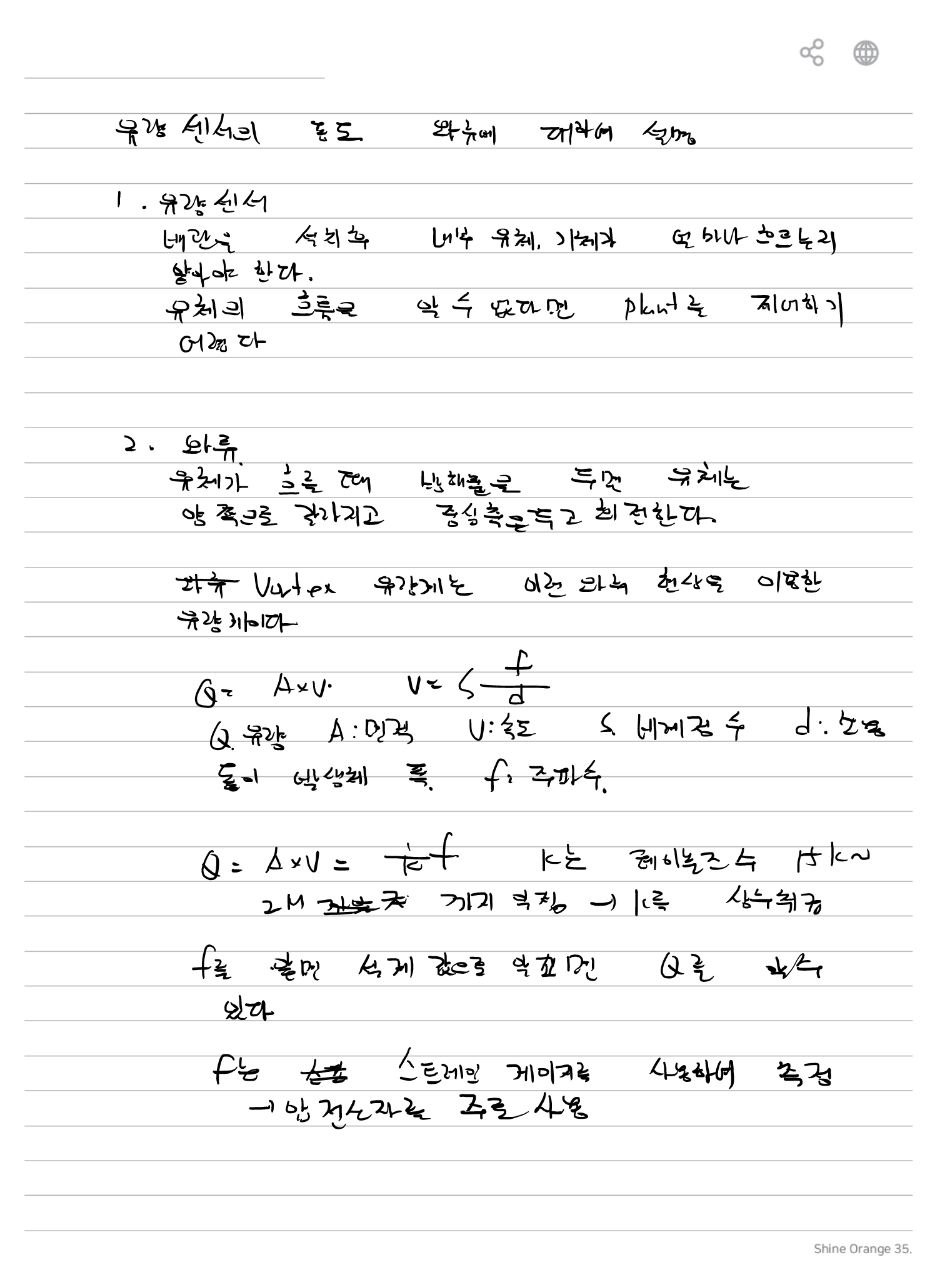 유량 센서의 용도 와류에 대하여 설명
1. 유량센서
배관을 설치후 내부 유체, 기체가 얼마나 흐르는지
알아야 한다.
유체의 흐름을 알 수 없다면 plant를 제어하기
어렵다
2. 와류.
유체가 흐를 때 방해물을 두면 유체는
양 쪽으로 갈라지고 중심축을두고 회전한다.
와류 Vortex 유량계는 이런 와류 현상을 이용한
유량계이다
Q= A×V. V= S f/d
Q 유량 A:면적 V:속도 S. 비례정수 d:
발생체 폭. f: 주파수.
Q = A×V = 1/k f k는 레이놀즈 수 k~
2M 까지 일정 → k를 상수취급
f를 알면 설계 값으로 Q를 알수
있다
f는 스트레인 게이지를 사용하여 측정
→ 압전소자를 주로 사용
Shine Orange 35.